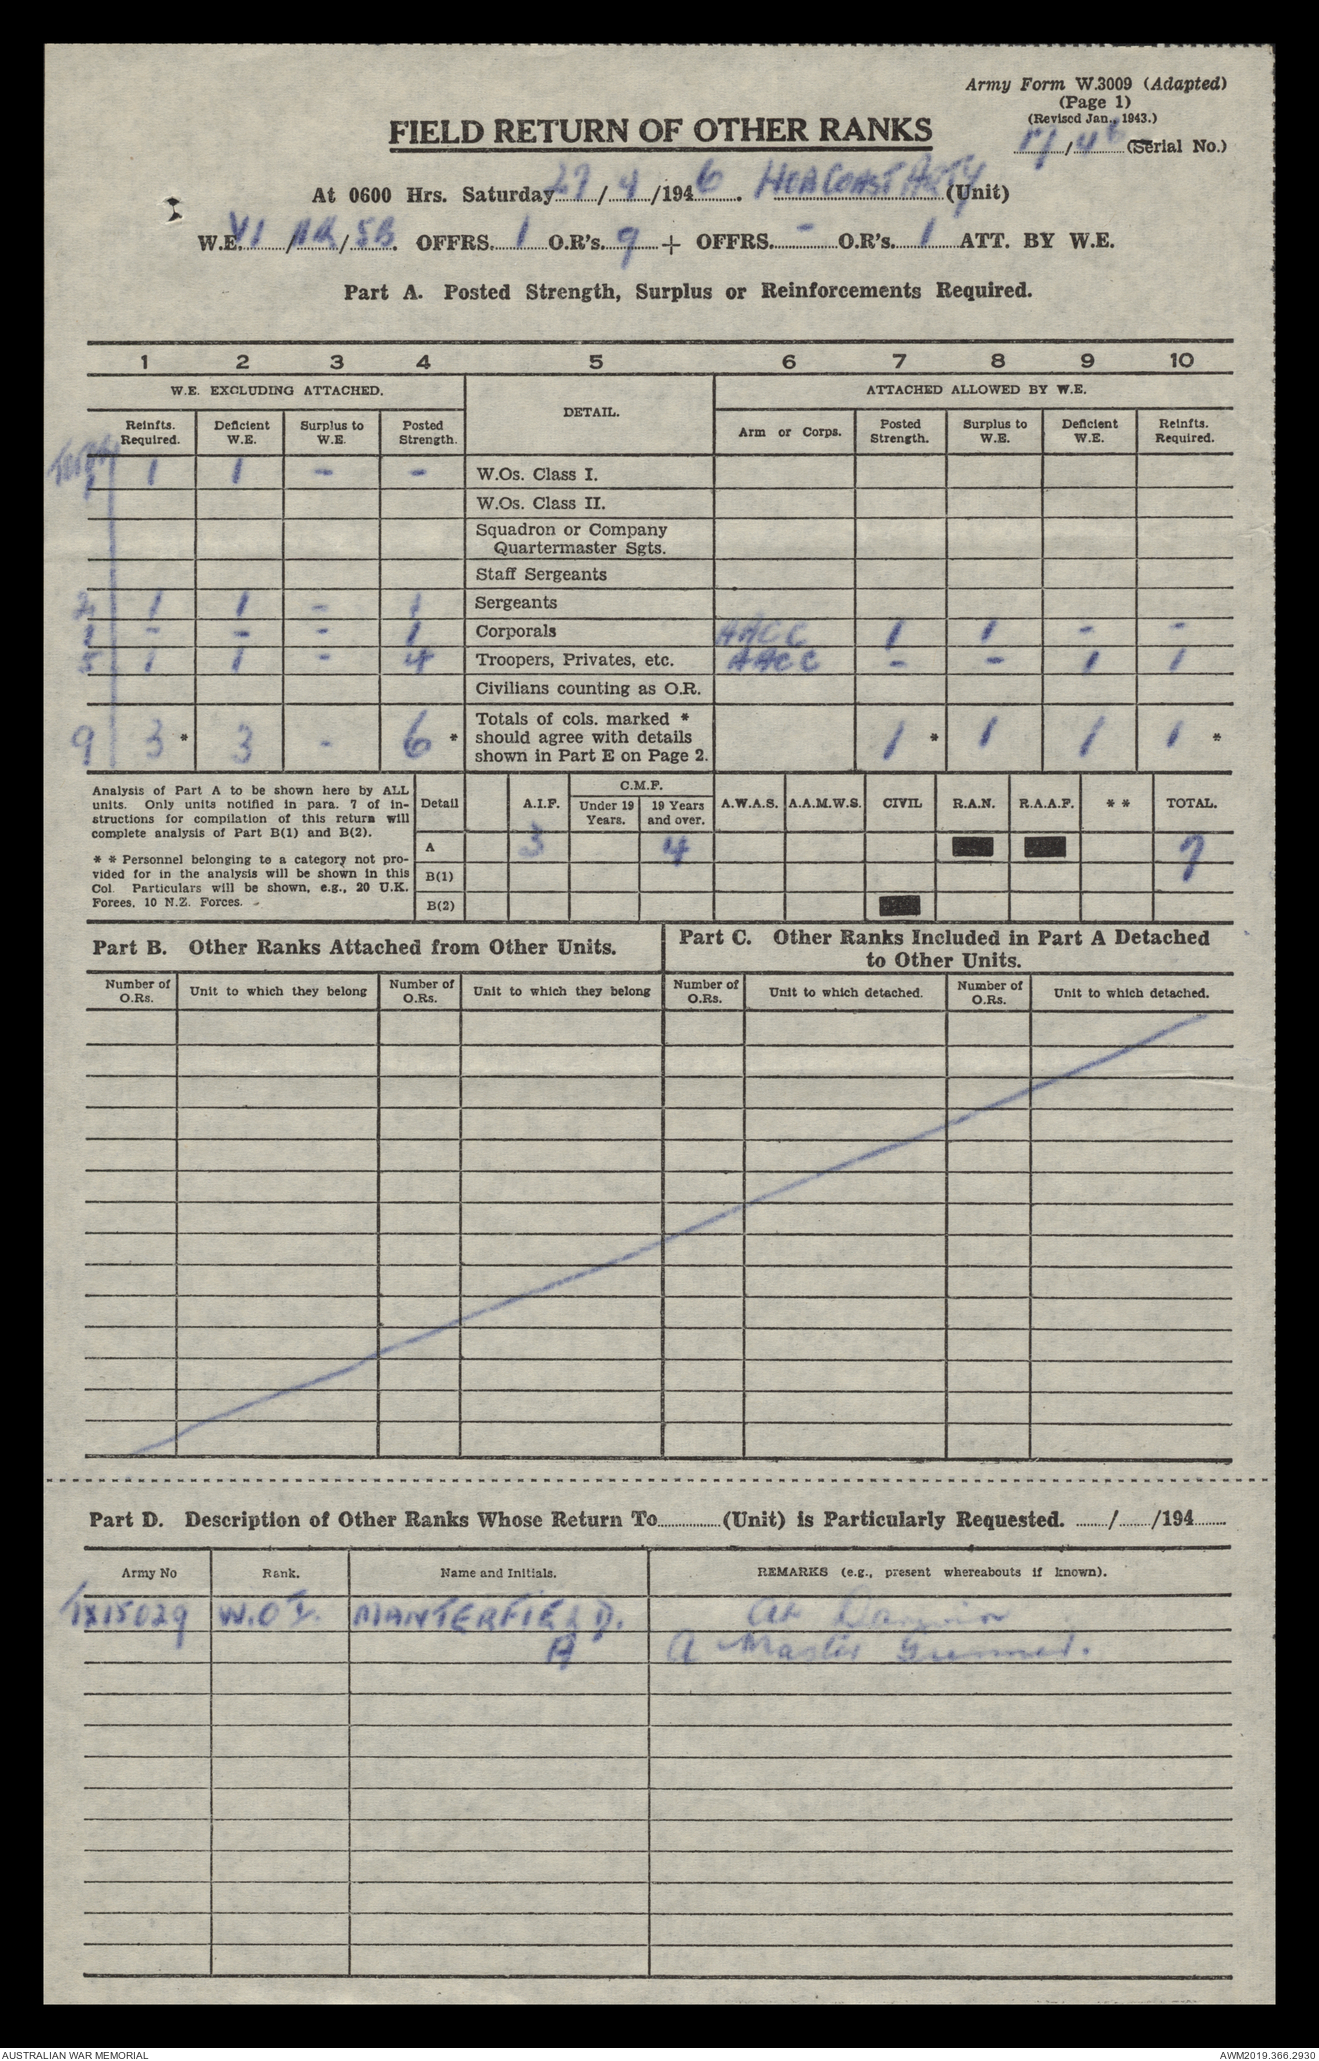 Army Form W.3009 (Adapted)
(Page 1)
(Revised Jan., 1943.)
FIELD RETURN OF OTHER RANKS
17/46 (Serial No.)
At 0600 Hrs. Saturday 27/4/1946. (Unit)
W.E. VI / /5B. OFFRS. 1 O.R's. 9 + OFFRS. - O.R's. 1 ATT. BY W.E.
Part A. Posted Strength, Surplus or Reinforcements Required.
1 2 3 4 5 6 7 8 9 10
W.E. EXCLUDING ATTACHED. DETAIL. ATTACHED ALLOWED BY W.E.
Reinfts. Required. Deficient W.E. Surplus to W.E. Posted Strength. Arm or Corps. Posted Strength. Surplus to W.E. Deficient W.E. Reinfts. Required.
1 1 1 - - W.Os. Class I.
W.Os. Class II.
Squadron or Company
Quartermaster Sgts.
Staff Sergeants
2 1 1 - 1 Sergeants
1 - - - 1 Corporals AACC 1 1 - -
5 1 1 - 4 Troopers, Privates, etc. AACC - - 1 1
Civilians counting as O.R.
Totals of cols. marked *
9 3 * 3 - 6 * should agree with details 1 * 1 1 1 *
shown in Part E on Page 2.
Analysis of Part A to be shown here by ALL
units. Only units notified in para. 7 of in-
structions for compilation of this return will
complete analysis of Part B(1) and B(2).
* * Personnel belonging to a category not pro-
vided for in the analysis will be shown in this
Col. Particulars will be shown, e.g., 20 U.K.
Forces, 10 N.Z. Forces.
Detail A.I.F. C.M.F. Under 19 Years. 19 Years and over. A.W.A.S. A.A.M.W.S. CIVIL R.A.N. R.A.A.F. * * TOTAL.
A 3 4 7
B(1)
B(2)
Part B. Other Ranks Attached from Other Units.
Part C. Other Ranks Included in Part A Detached
to Other Units.
Number of O.Rs. Unit to which they belong Number of O.Rs. Unit to which they belong Number of O.Rs. Unit to which detached. Number of O.Rs. Unit to which detached.
Part D. Description of Other Ranks Whose Return To (Unit) is Particularly Requested. / /194
Army No Rank. Name and Initials. REMARKS (e.g., present whereabouts if known).
TX15029 W.O I. MANTERFIELD. At Darwin
A A Master Gunner.
AUSTRALIAN WAR MEMORIAL
AWM2019.366.2930